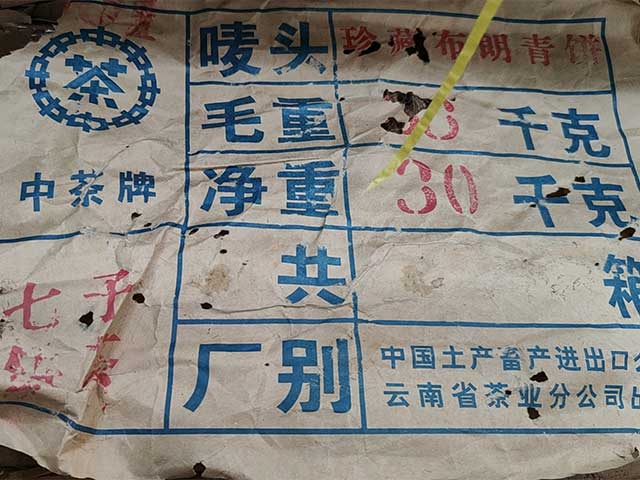 茶
中茶牌
唛头 珍藏布朗青饼
毛重 千克
净重 30 千克
共 箱
七子
厂别 中国土产畜产进出口
云南省茶业分公司出